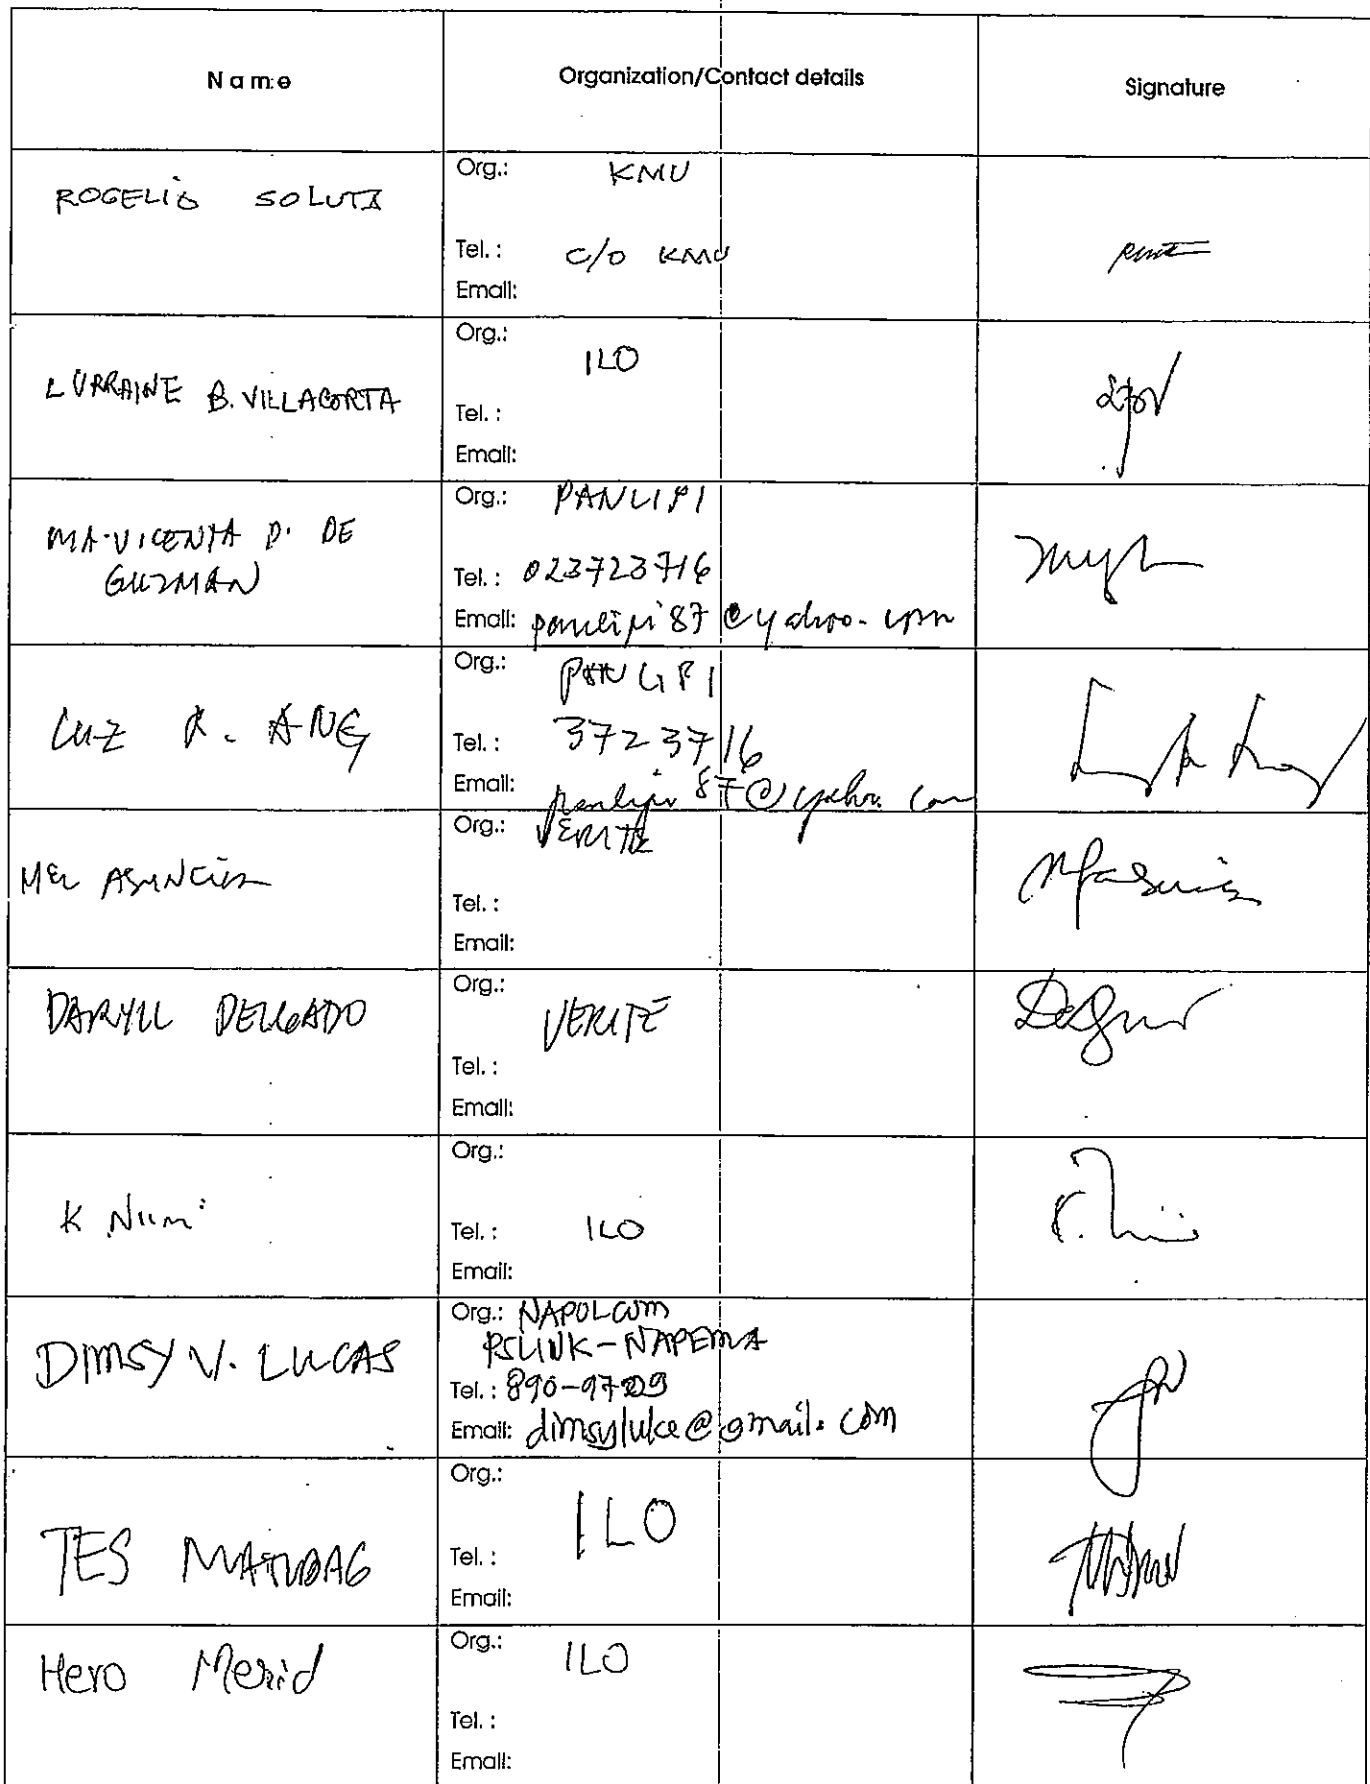 Name
Organization/Contact details
Signature
ROGELIO SOLUTA
Org.: KMU
Tel. : c/o KMU
Email:
LURRAINE B. VILLACORTA
Org.:
ILO
Tel. :
Email:
MA. VICENTA P. DE
GUZMAN
Org.: PANLIPI
Tel. : 023723716
Email: panlipi87@yahoo.com
LUZ R. ANG
Org.: PANLIPI
Tel. : 3723716
Email: panlipi87@yahoo.com
MEL ASUNCION
Org.: VERITE
Tel. :
Email:
DARYLL DELGADO
Org.: VERITE
Tel. :
Email:
K
Org.:
Tel. : ILO
Email:
DIMSY V. LUCAS
Org.: NAPOLCOM
PSLINK-NAPEMA
Tel. :
Email: dimsyluke@gmail.com
TES
Org.:
ILO
Tel. :
Email:
Hero Merid
Org.: ILO
Tel. :
Email: